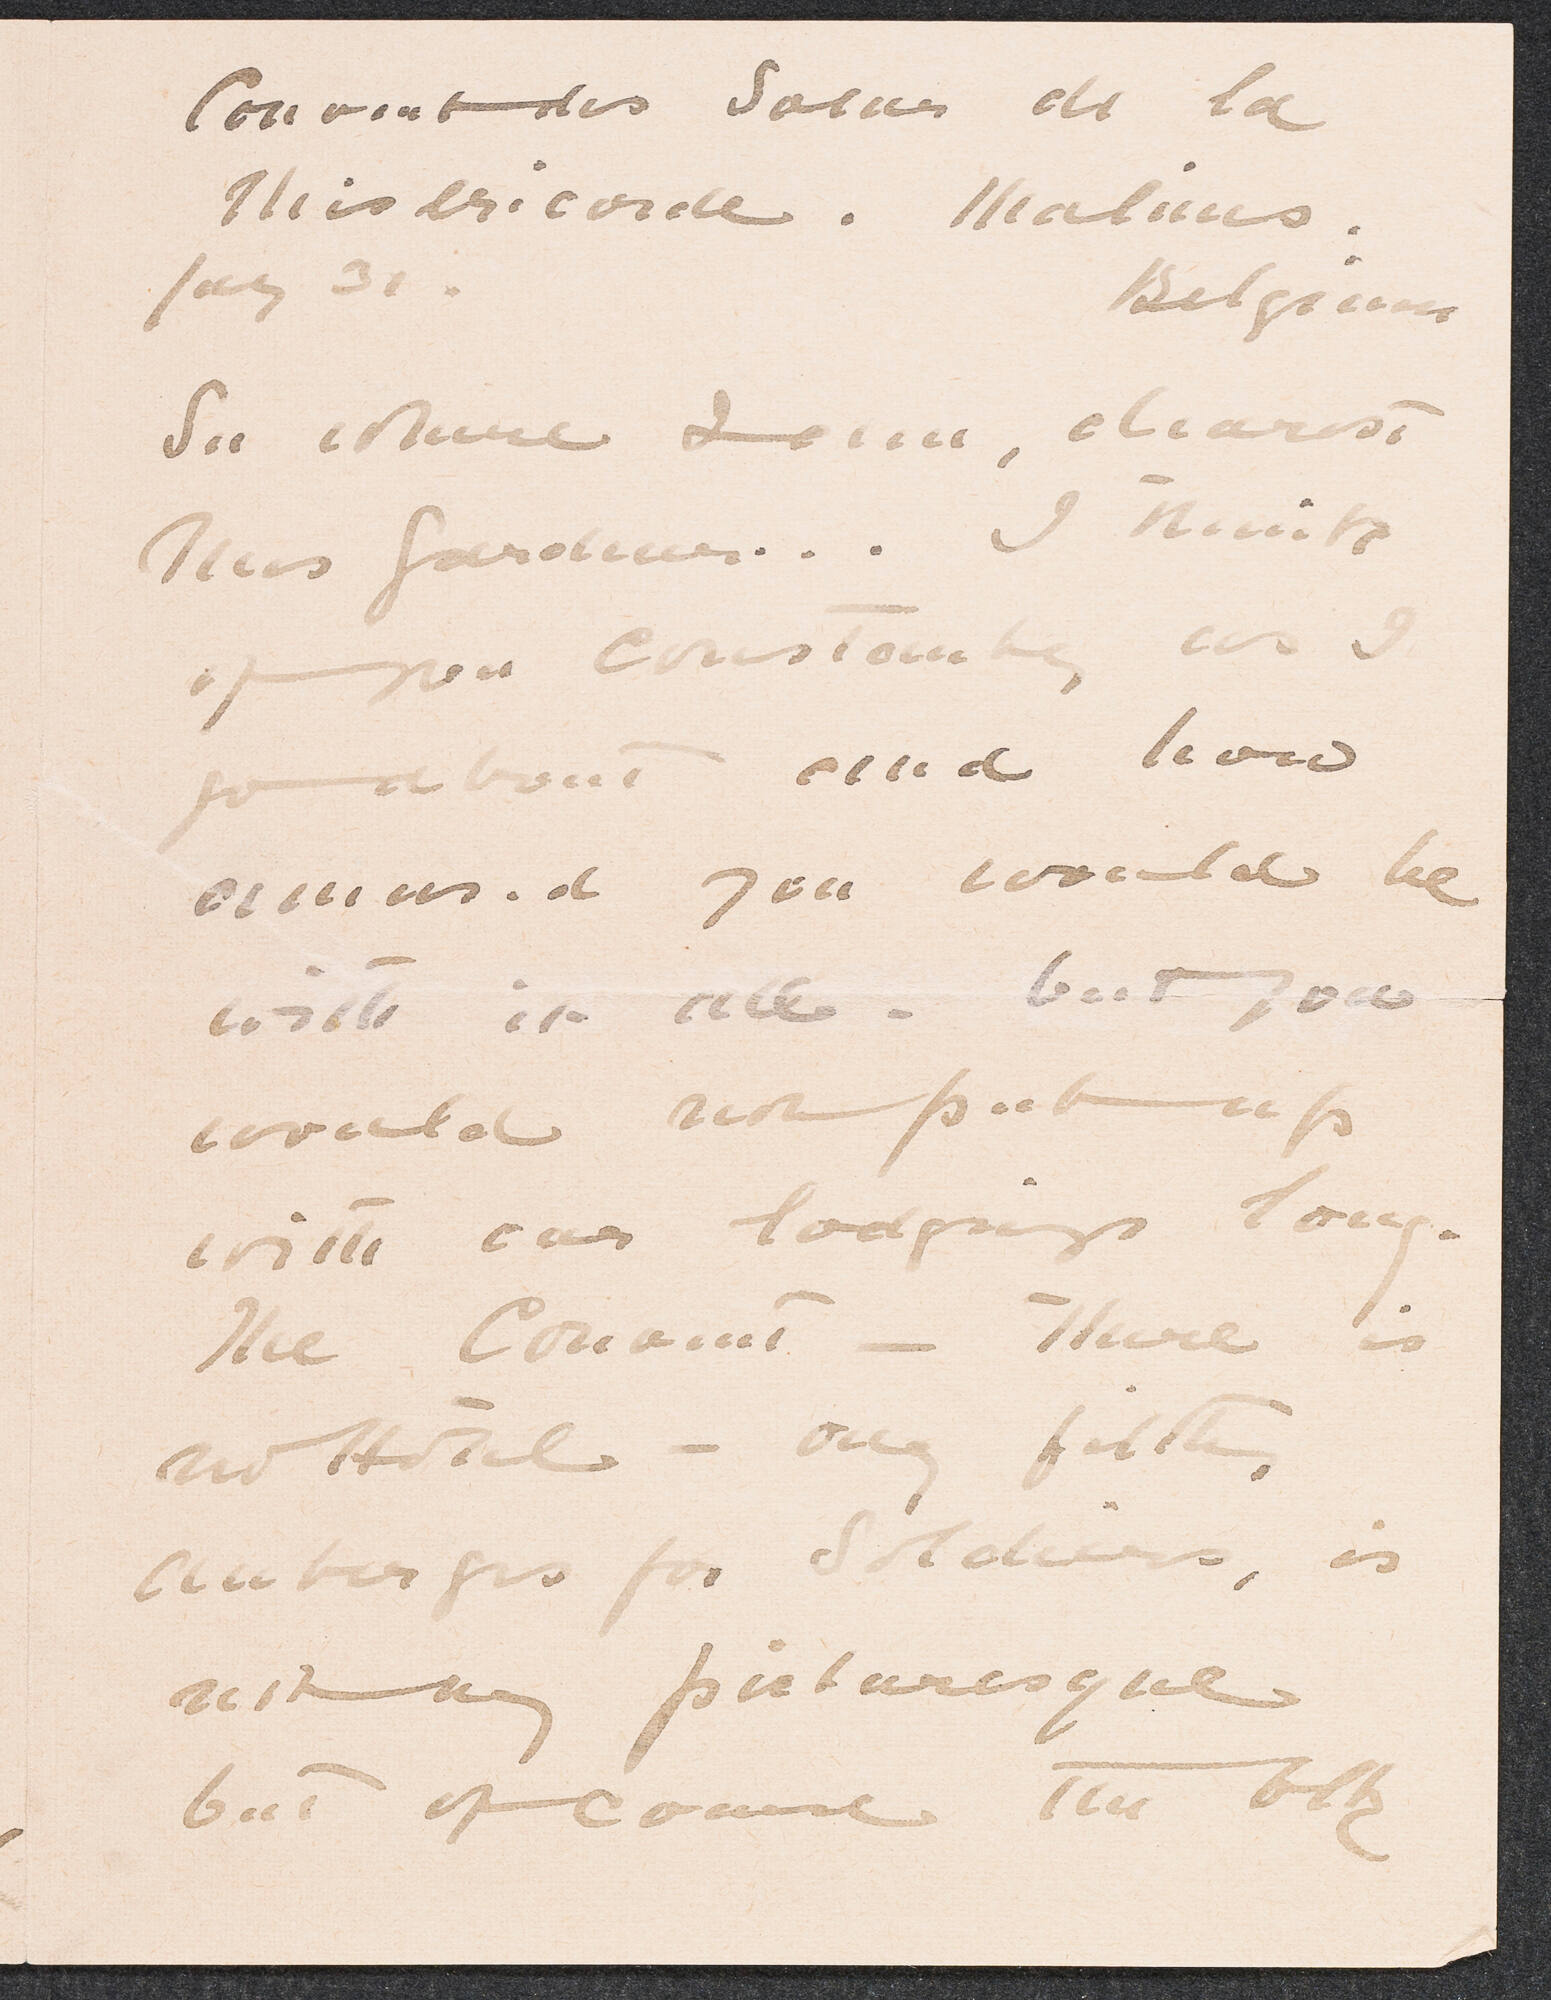 Convent des Soeurs de la
Misericorde. Malines.
July 31. Belgium
See where I am, dearest
Mrs Gardner... I think
of you constantly as I
go about and how
amused you would be
with it all. but you
would not put up
with our lodgings long.
The Convent — There is
no Hotel — only filthy
auberges for Soldiers, is
not only picturesque
but of course the